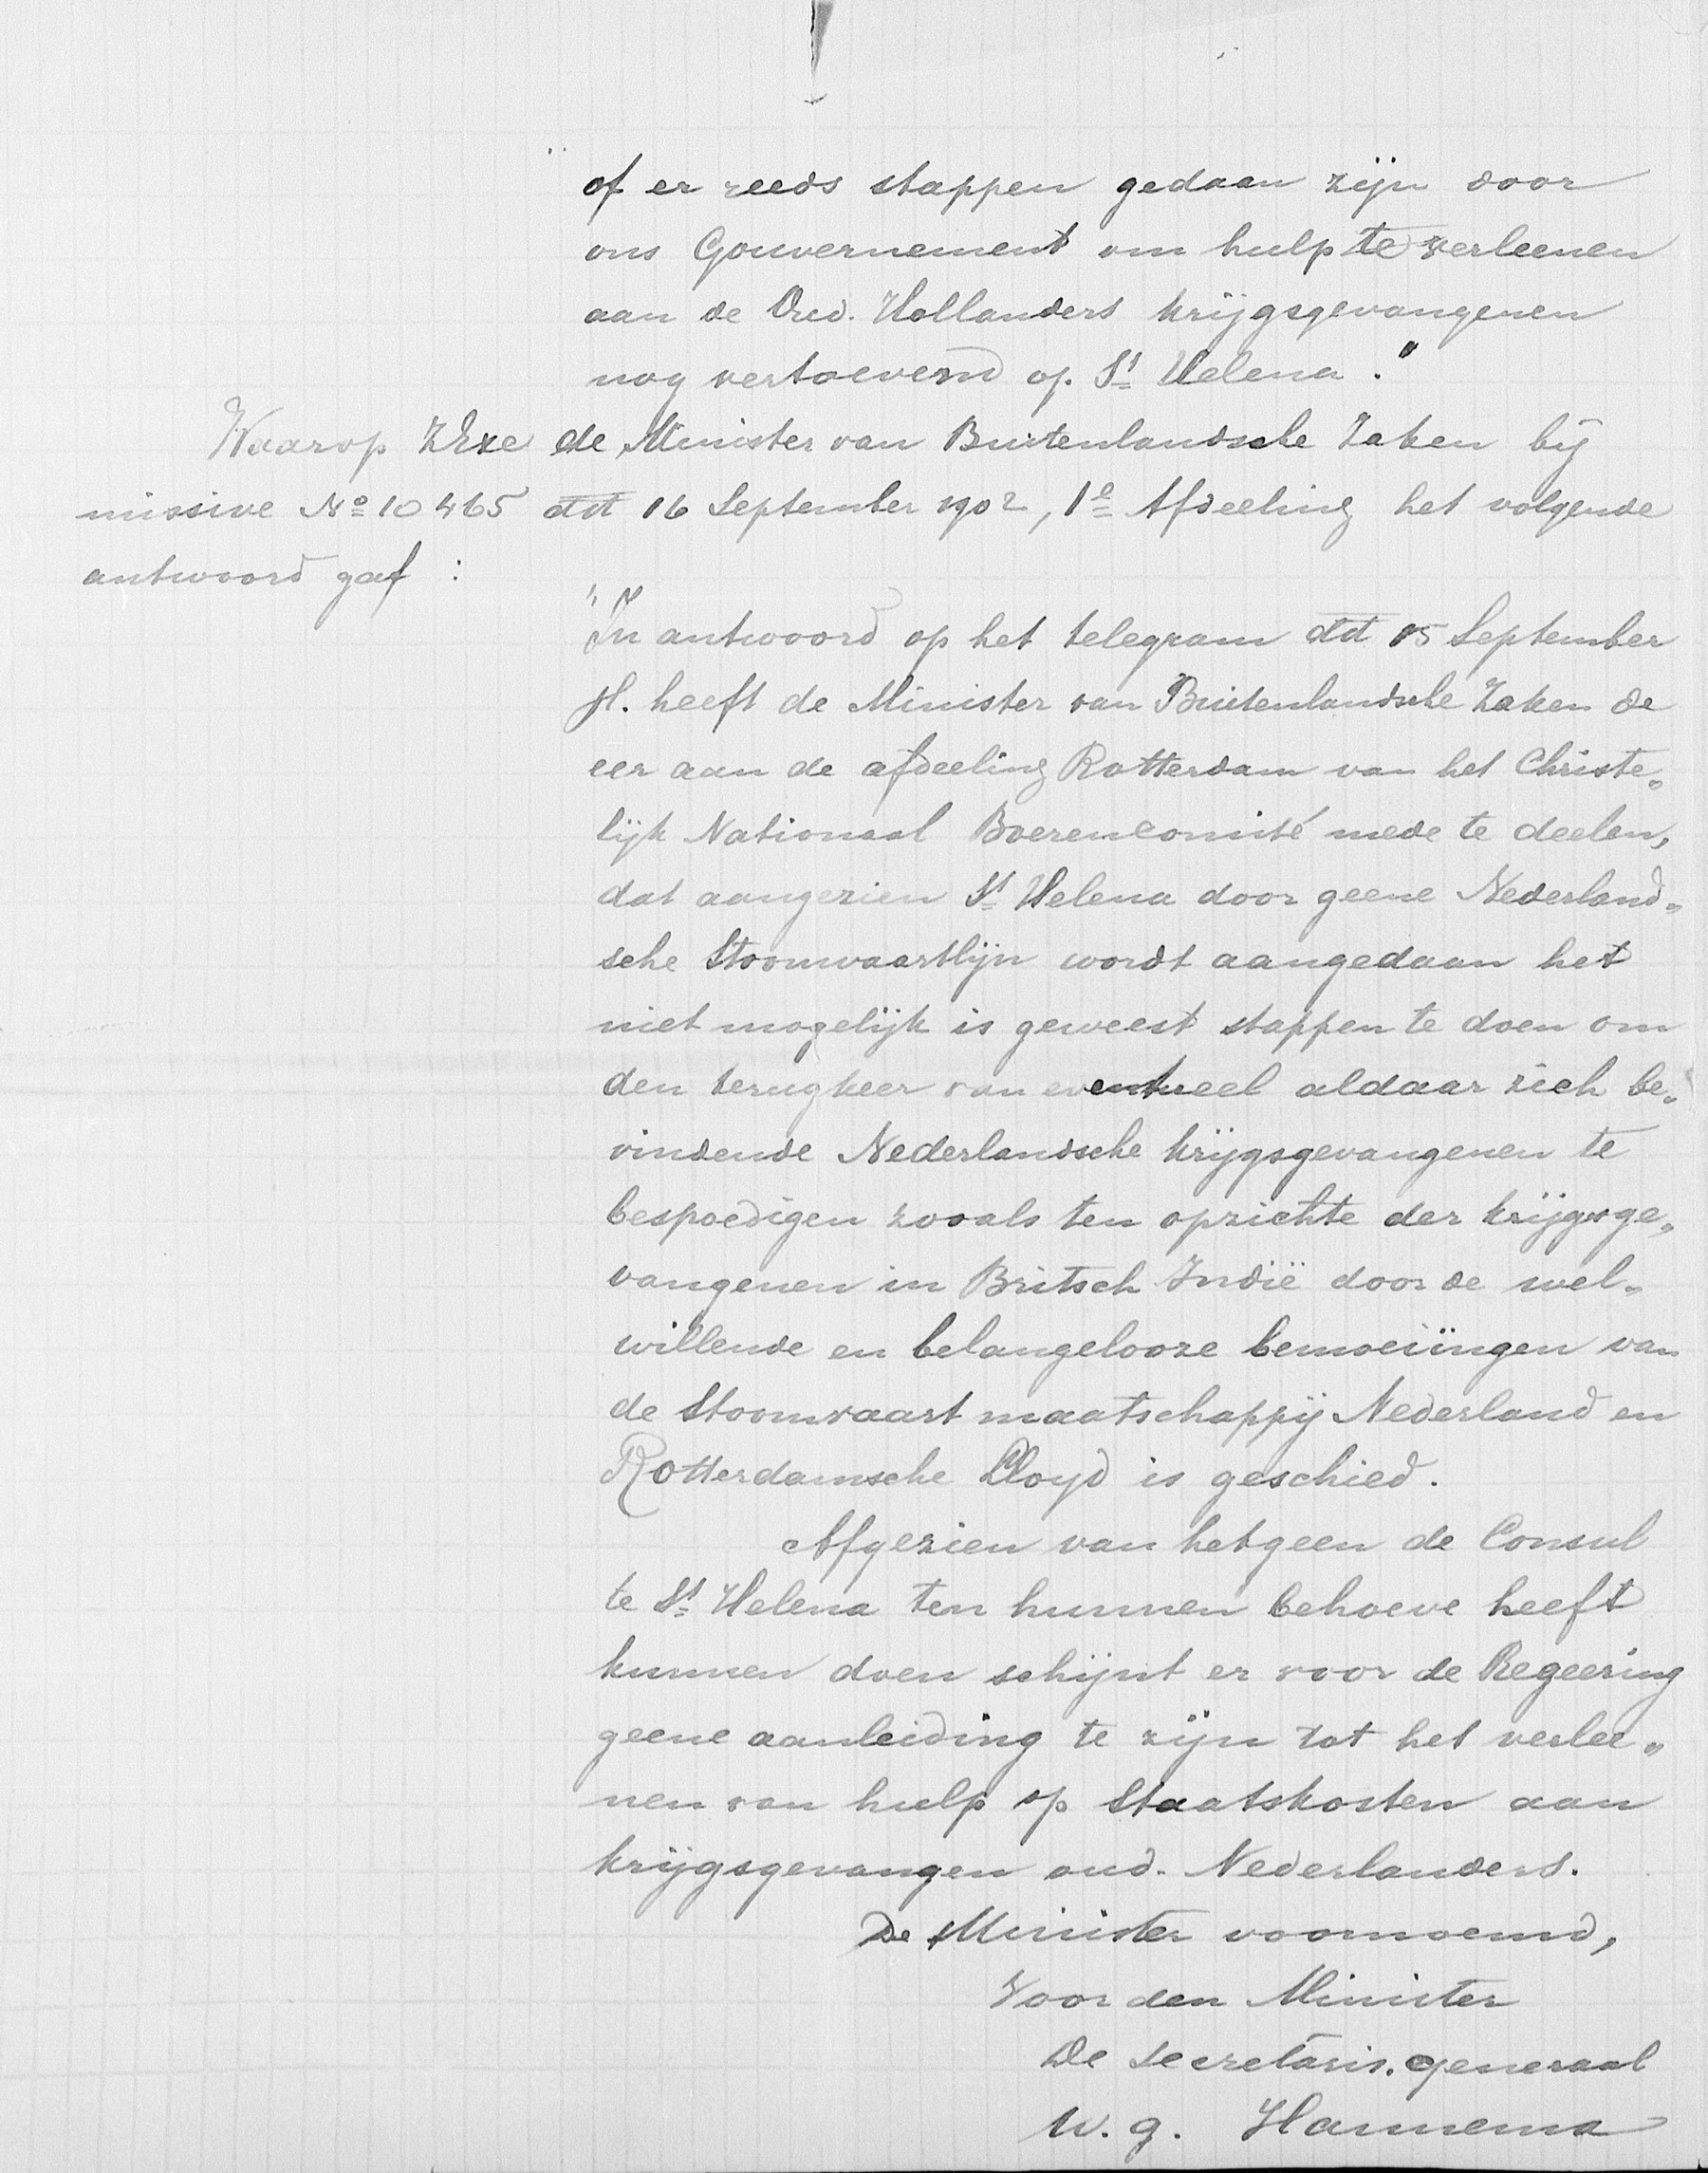 of er reeds stappen gedaan zijn door
ons Gouvernement om hulp te verleenen
aan de Oud. Hollanders krijgsgevangenen
nog vertoevend op St Helena."
Waarop ZExe de Minister van Buitenlandsche Zaken bij
missive No 10465 dd 16 September 1902, 1e Afdeeling het volgende
antwoord gaf :
"In antwoord op het telegram dd 15 September
jl. heeft de Minister van Buitenlandsche Zaken de
eer aan de afdeeling Rotterdam van het Christe„
lijk Nationaal Boerencomité mede te deelen,
dat aangezien St Helena door geene Nederland„
sche Stoomvaartlijn wordt aangedaan het
niet mogelijk is geweest stappen te doen om
den terugkeer van eventueel aldaar zich be„
vindende Nederlandsche krijgsgevangenen te
bespoedigen zooals ten opzichte der krijgsge„
vangenen in Britsch Indië door de wel„
willende en belangelooze bemoeiïngen van
de Stoomvaart maatschappij Nederland en
Rotterdamsche Lloyd is geschied.
Afgezien van hetgeen de Consul
te St Helena ten hunnen behoeve heeft
kunnen doen schijnt er voor de Regeering
geene aanleiding te zijn tot het verlee„
nen van hulp op Staatskosten aan
krijgsgevangen oud. Nederlanders.
De Minister voornoemd,
Voor den Minister
De Secretaris. generaal
w. g. Hannema